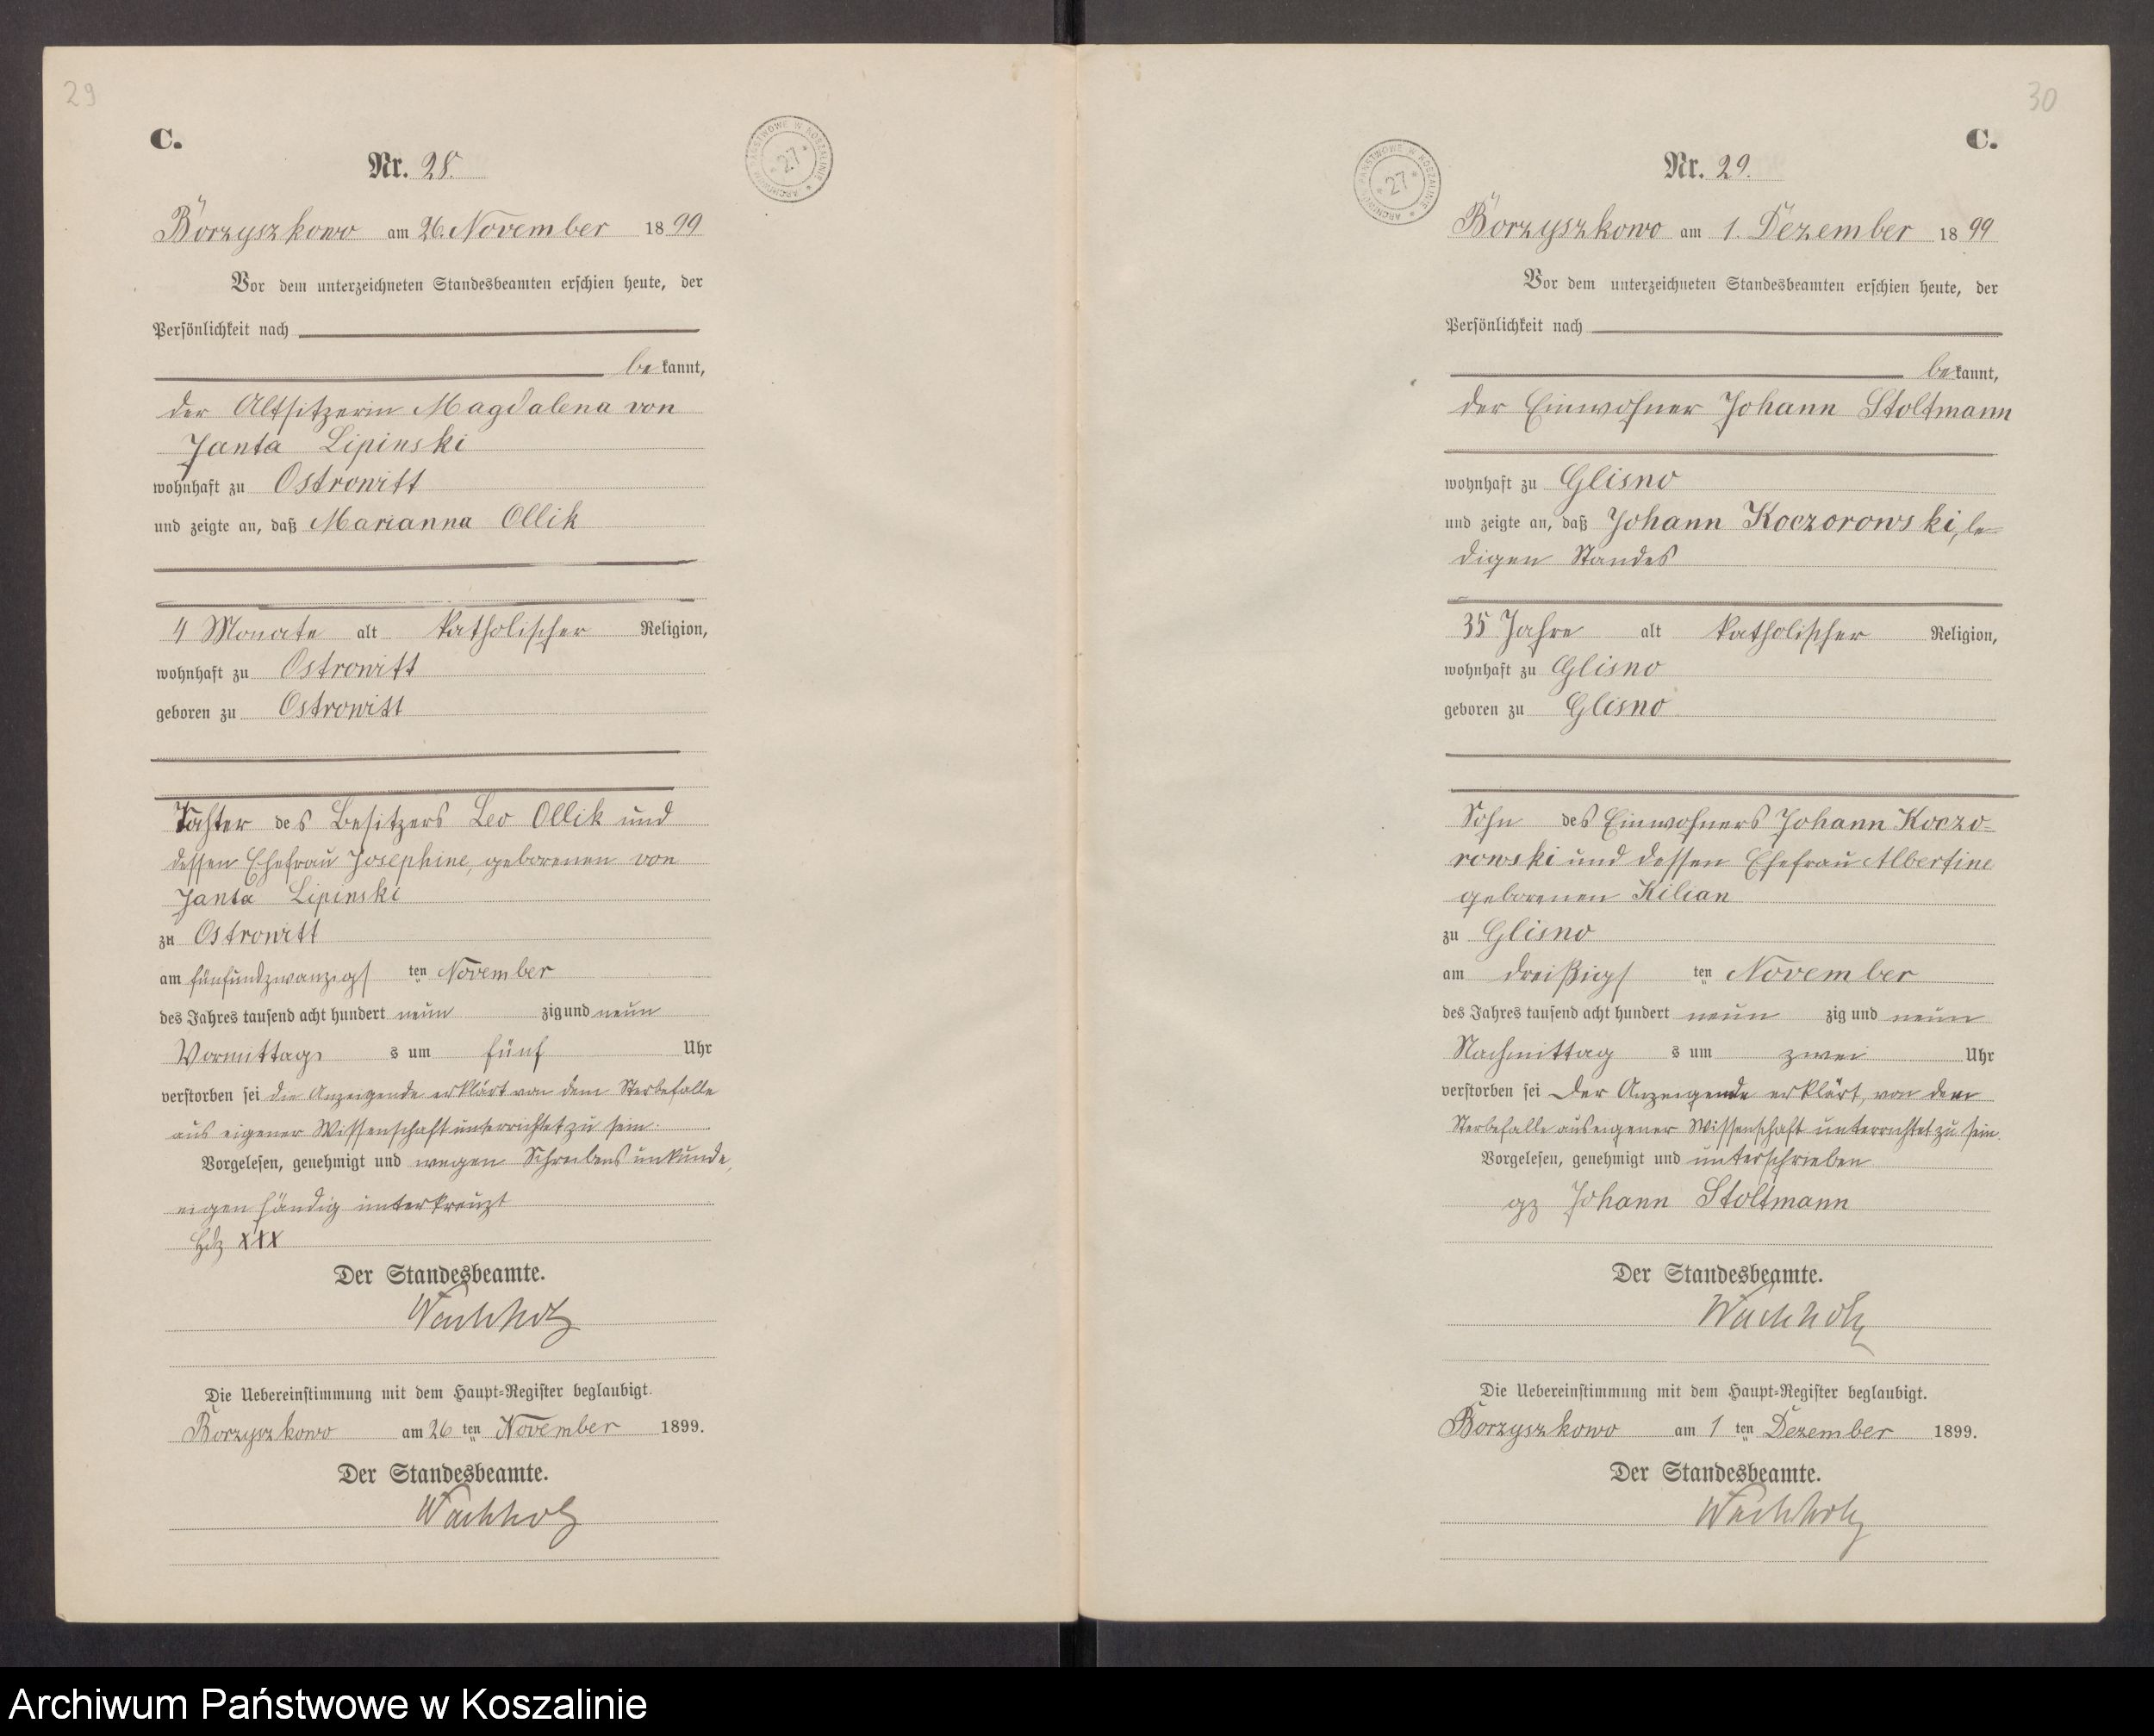 29
C.
Nr. 28.
ARCHIWUM PAŃSTWOWE W KOSZALINIE * 27 *
Borzyszkowo am 26. November 1899
Vor dem unterzeichneten Standesbeamten erschien heute, der
Persönlichkeit nach
bekannt,
der Altsitzerin Magdalena von
Janta Lipinski
wohnhaft zu Ostrowitt
und zeigte an, daß Marianna Ollik
4 Monate alt katholischer Religion,
wohnhaft zu Ostrowitt
geboren zu Ostrowitt
Tochter des Besitzers Leo Ollik und
dessen Ehefrau Josephine, geborenen von
Janta Lipinski
zu Ostrowitt
am fünfundzwanzigsten November
des Jahres tausend acht hundert neunzig und neun
Vormittags um fünf Uhr
verstorben sei die Anzeigende erklärt von dem Sterbefalle
aus eigener Wissenschaft unterrichtet zu sein.
Vorgelesen, genehmigt und wegen Schreibensunkunde,
eigenhändig unterkreuzt
Hdz XXX
Der Standesbeamte.
Wachholz
Die Uebereinstimmung mit dem Haupt-Register beglaubigt.
Borzyszkowo am 26 ten November 1899.
Der Standesbeamte.
Wachholz
30
C.
Nr. 29.
ARCHIWUM PAŃSTWOWE W KOSZALINIE * 27 *
Borzyszkowo am 1. Dezember 1899
Vor dem unterzeichneten Standesbeamten erschien heute, der
Persönlichkeit nach
bekannt,
der Einwohner Johann Stoltmann
wohnhaft zu Glisno
und zeigte an, daß Johann Koczorowski, le-
digen Standes
35 Jahre alt katholischer Religion,
wohnhaft zu Glisno
geboren zu Glisno
Sohn des Einwohners Johann Koczo-
rowski und dessen Ehefrau Albertine
geborenen Kilian
zu Glisno
am dreißigsten November
des Jahres tausend acht hundert neunzig und neun
Nachmittags um zwei Uhr
verstorben sei Der Anzeigende erklärt, von dem
Sterbefalle aus eigener Wissenschaft unterrichtet zu sein.
Vorgelesen, genehmigt und unterschrieben
gz Johann Stoltmann
Der Standesbeamte.
Wachholz
Die Uebereinstimmung mit dem Haupt-Register beglaubigt.
Borzyszkowo am 1 ten Dezember 1899.
Der Standesbeamte.
Wachholz
Archiwum Państwowe w Koszalinie